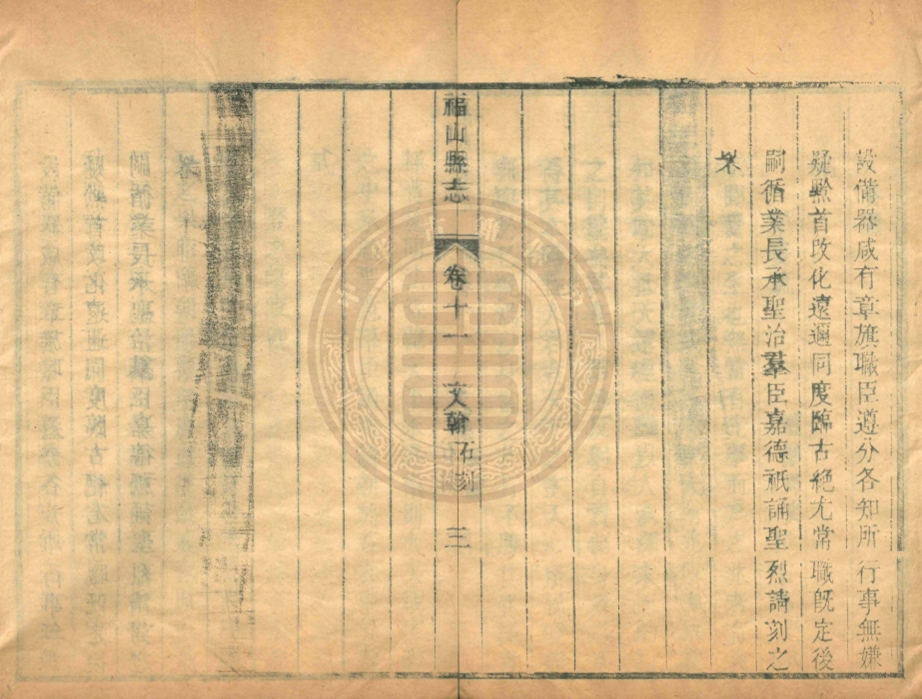 設備器咸有章旗職臣遵分各知所行事無嫌
疑黔首攺化遠邇同度臨古絶尤常職旣定後
嗣循業長承聖治羣臣嘉德祇誦聖烈請刻之
福山縣志 卷十一 文翰 石刻 三